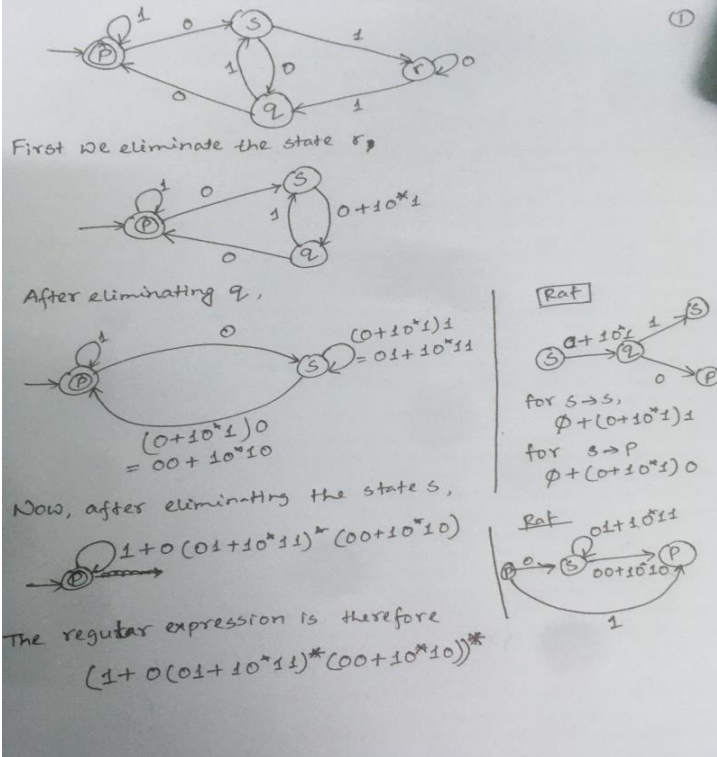 ①
1
0
S
1
P
1
0
r
0
0
q
1
First we eliminate the state r,
1
0
S
P
1
0+10*1
0
q
After eliminating q,
1
0
(0+10*1)1
P
S
= 01+10*11
(0+10*1)0
= 00+10*10
Raf
S
0+10*1
1
S
q
0
P
for s→s,
φ+(0+10*1)1
for s→P
φ+(0+10*1)0
Now, after eliminating the state s,
1+0(01+10*11)*(00+10*10)
P
Raf
01+10*11
P
0
S
P
00+10*10
1
The regular expression is therefore
(1+0(01+10*11)*(00+10*10))*